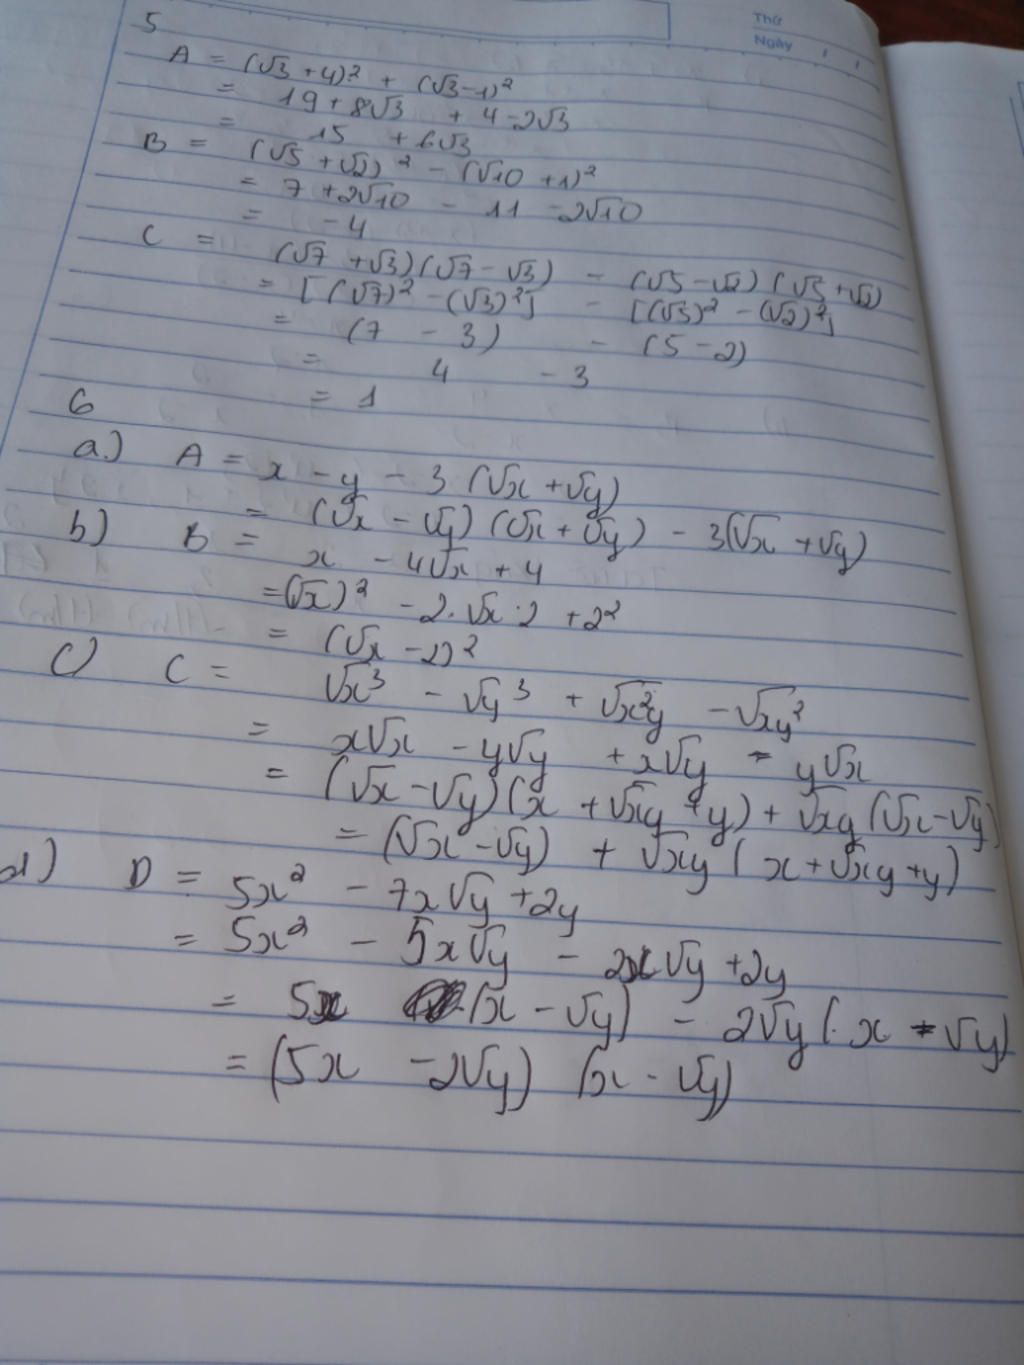 Thứ
Ngày / /
5
A = (√3 + 4)² + (√3 - 1)²
= 19 + 8√3 + 4 - 2√3
= 15 + 6√3
B = (√5 + √2)² - (√10 + 1)²
= 7 + 2√10 - 11 - 2√10
= -4
C = (√7 + √3)(√7 - √3) - (√5 - √2)(√5 + √2)
= [(√7)² - (√3)²] - [(√5)² - (√2)²]
= (7 - 3) - (5 - 2)
= 4 - 3
= 1
6
a.) A = x - y - 3(√x + √y)
= (√x - √y)(√x + √y) - 3(√x + √y)
b) B = x - 4√x + 4
= (√x)² - 2.√x.2 + 2²
= (√x - 2)²
c) C = √x³ - √y³ + √x²y - √xy²
= x√x - y√y + x√y - y√x
= (√x - √y)(x + √xy + y) + √xy(√x - √y)
= (√x - √y) + √xy (x + √xy + y)
d) D = 5x² - 7x√y + 2y
= 5x² - 5x√y - 2x√y + 2y
= 5x (x - √y) - 2√y (x - √y)
= (5x - 2√y) (x - √y)